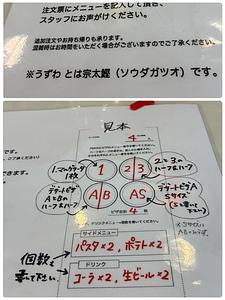 注文票にメニューを記入して頂き、
スタッフにお声がけください。
追加注文やお持ち帰りも承ります。
混雑時はお時間をいただく場合がございますのでご了承ください。
※うずわ とは宗太鰹（ソウダガツオ）です。
見本
4
1.マルゲリータ
1枚
1
2/3
2と3の
ハーフ&ハーフ
デザートピザ
AとBの
ハーフ&ハーフ
A/B
AS
デザートピザA
Sサイズ
(Sと書いて下さい)
4
サイドメニュー
パスタ×2, ポテト×2
個数を
書いて下さい。
ドリンク
コーラ×2, 生ビール×2